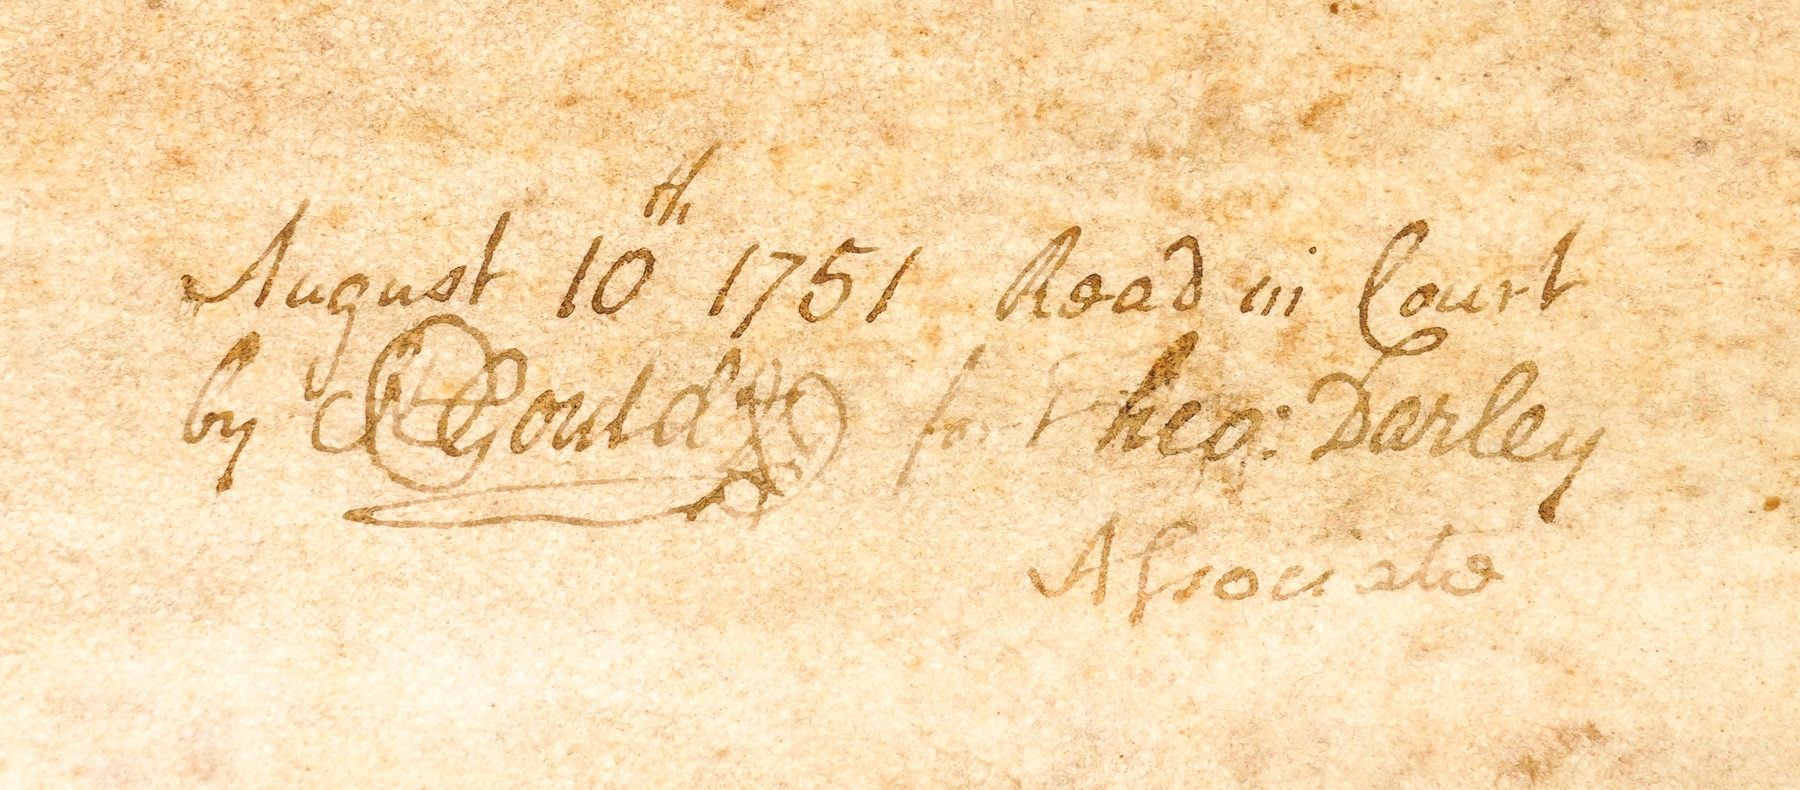 August 10th 1751 Read in Court
by Gould for Theo: Darley
Associate